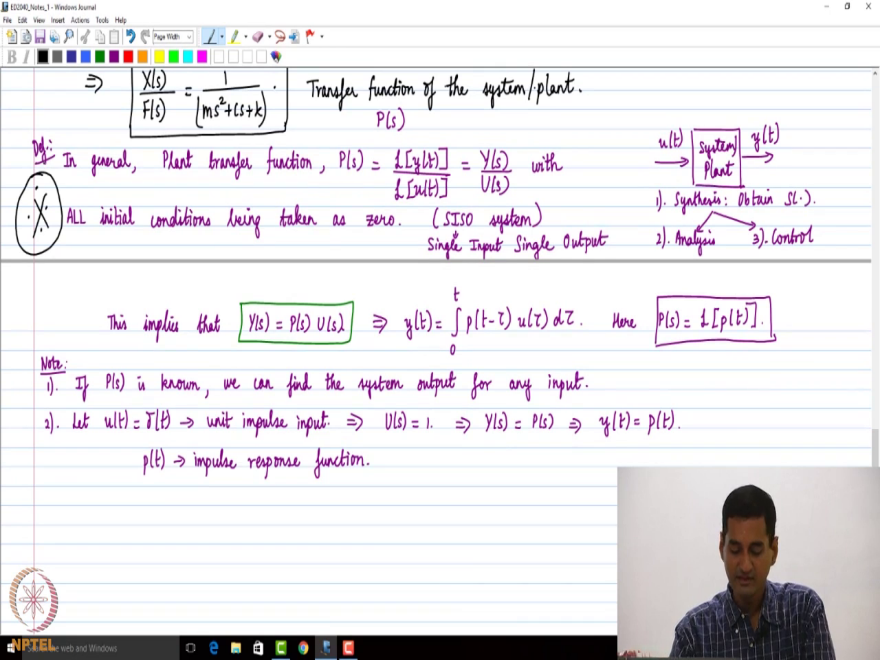 ED2040_Notes_1 - Windows Journal
File Edit View Insert Actions Tools Help
Page Width
B I
⇒ X(s)/F(s) = 1/(ms²+cs+k) . Transfer function of the system/plant.
P(s)
Def: In general, Plant transfer function, P(s) = L[y(t)]/L[u(t)] = Y(s)/U(s) with
ALL initial conditions being taken as zero. (SISO system)
Single Input Single Output
u(t) → System/Plant → y(t)
1). Synthesis: Obtain S(.).
2). Analysis 3). Control
This implies that Y(s) = P(s) U(s) ⇒ y(t) = ∫₀ᵗ p(t-τ) u(τ) dτ. Here P(s) = L[p(t)].
Note:
1). If P(s) is known, we can find the system output for any input.
2). Let u(t) = δ(t) → unit impulse input. ⇒ U(s) = 1. ⇒ Y(s) = P(s) ⇒ y(t) = p(t).
p(t) → impulse response function.
NPTEL
the web and Windows